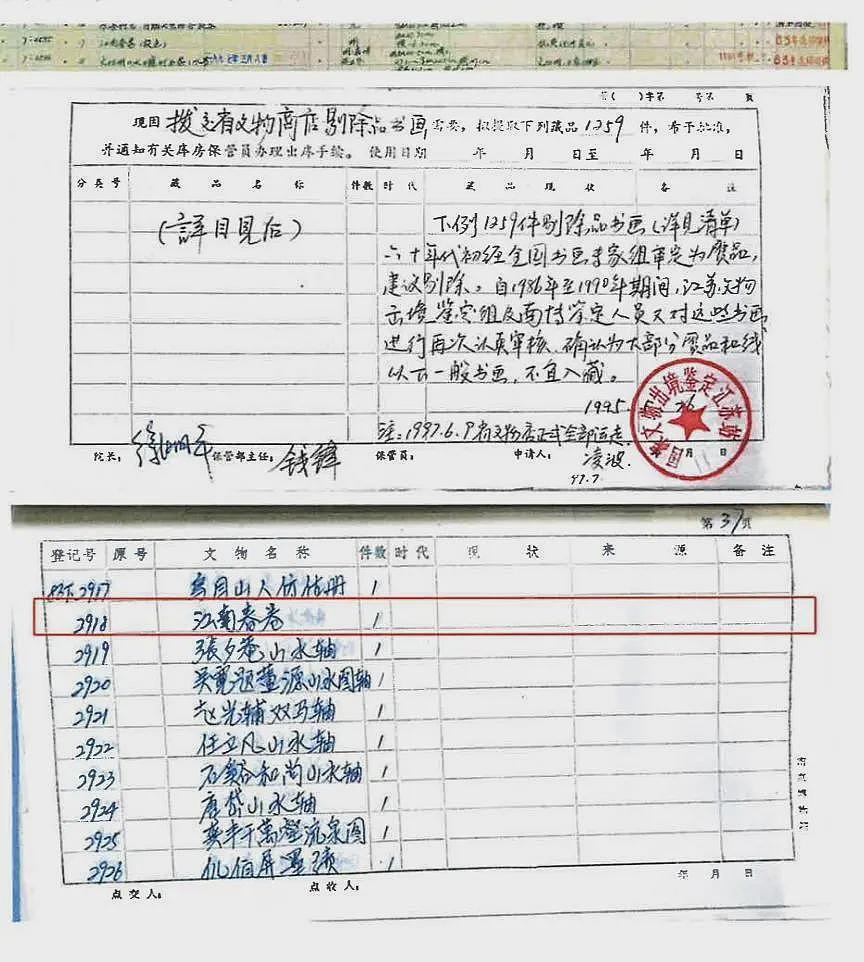 字( )字第 号第 页
现因拨交省文物商店剔除品书画需要,拟提取下列藏品1259件,希予批准,
并通知有关库房保管员办理出库手续。使用日期 年 月 日至 年 月 日
分类号 藏品名称 件数 时代 藏品现状 备注
(詳目见后)
下例1259件剔除品书画(详见清单)
六十年代初经全国书画专家组审定为赝品,
建议剔除。自1986年至1990年期间,江苏文物
出境鉴定组及南博鉴定人员又对这些书画
进行再次认真审核,确认为大部分赝品和线
以下一般书画,不宜入藏。
1995.
国家文物出境鉴定江苏站
月 日
注:1997.6.9省文物店正式全部运走.
院长: 徐湖平 保管部主任: 钱锋 保管员: 申请人: 凌波.
97.7.
第37页
登记号 原号 文物名称 件数 时代 现状 来源 备注
2917 1
2918 江南春卷 1
2919 張夕菴山水轴 1
2920 吴寛题董源山水图轴 1
2921 赵光辅双马轴 1
2922 任立凡山水轴 1
2923 石谿和尚山水轴 1
2924 唐岱山水轴 1
2925 1
2926 1
年 月 日
点交人: 点收人: